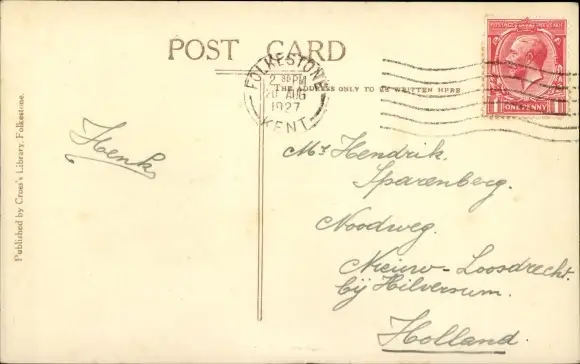 POST CARD
FOLKESTONE
2 30 PM
20 AUG
1927
KENT
THE ADDRESS ONLY TO BE WRITTEN HERE
POSTAGE REVENUE
1 ONE PENNY 1
Henk
Published by Croei's Library, Folkestone.
Mr Hendrik.
Sparenberg.
Noodweg.
Nieuw-Loosdrecht.
bij Hilversum.
Holland.